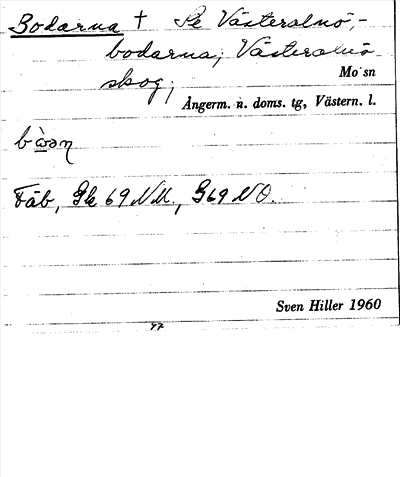 Bodarna † Se Västeralnö,-
bodarna, Västeralnö
skog;
Mo sn
Ångerm. n. doms. tg, Västern. l.
Fäb, Gk 69 NV., G69 NO.
Sven Hiller 1960